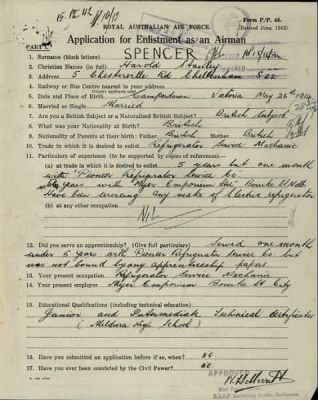 ROYAL AUSTRALIAN AIR FORCE.
Form P/P. 48.
Application for Enlistment as an Airman
PART I.
1. Surname (block letters) SPENCER
2. Christian Names (in full) Harold Stanley
3. Address 5 Chesterville Rd Cheltenham S.22
4. Railway or Bus Centre nearest to your address
5. Date and Place of Birth Camperdown Victoria May 26th 1914
6. Married or Single Married
7. Are you a British Subject or a Naturalised British Subject? British Subject
8. What was your Nationality at Birth? British
9. Nationality of Parents at their birth: Father British Mother British
10. Trade in which it is desired to enlist Refrigerator Service Mechanic
11. Particulars of experience (to be supported by copies of references)—
(a) at trade in which it is desired to enlist 5 year but one month
with "Pioneer Refrigerator Service Co"
years with "Myer Emporium Ltd" Bourke St Melb
Have been servicing any make of electric refrigerator
(b) at any other occupation
Nil
12. Did you serve an apprenticeship? (Give full particulars) Served one month
under 5 years with Pioneer Refrigerator Service Co but
was not bound by any apprenticeship papers
13. Your present occupation Refrigerator Service Mechanic
14. Your present employer Myer Emporium Bourke St City
15. Educational Qualifications (including technical education)
Junior and Intermediate Technical Certificates
(Mildura High School)
16. Have you submitted an application before if so, when? NO
17. Have you ever been convicted by the Civil Power? NO
APPROVED